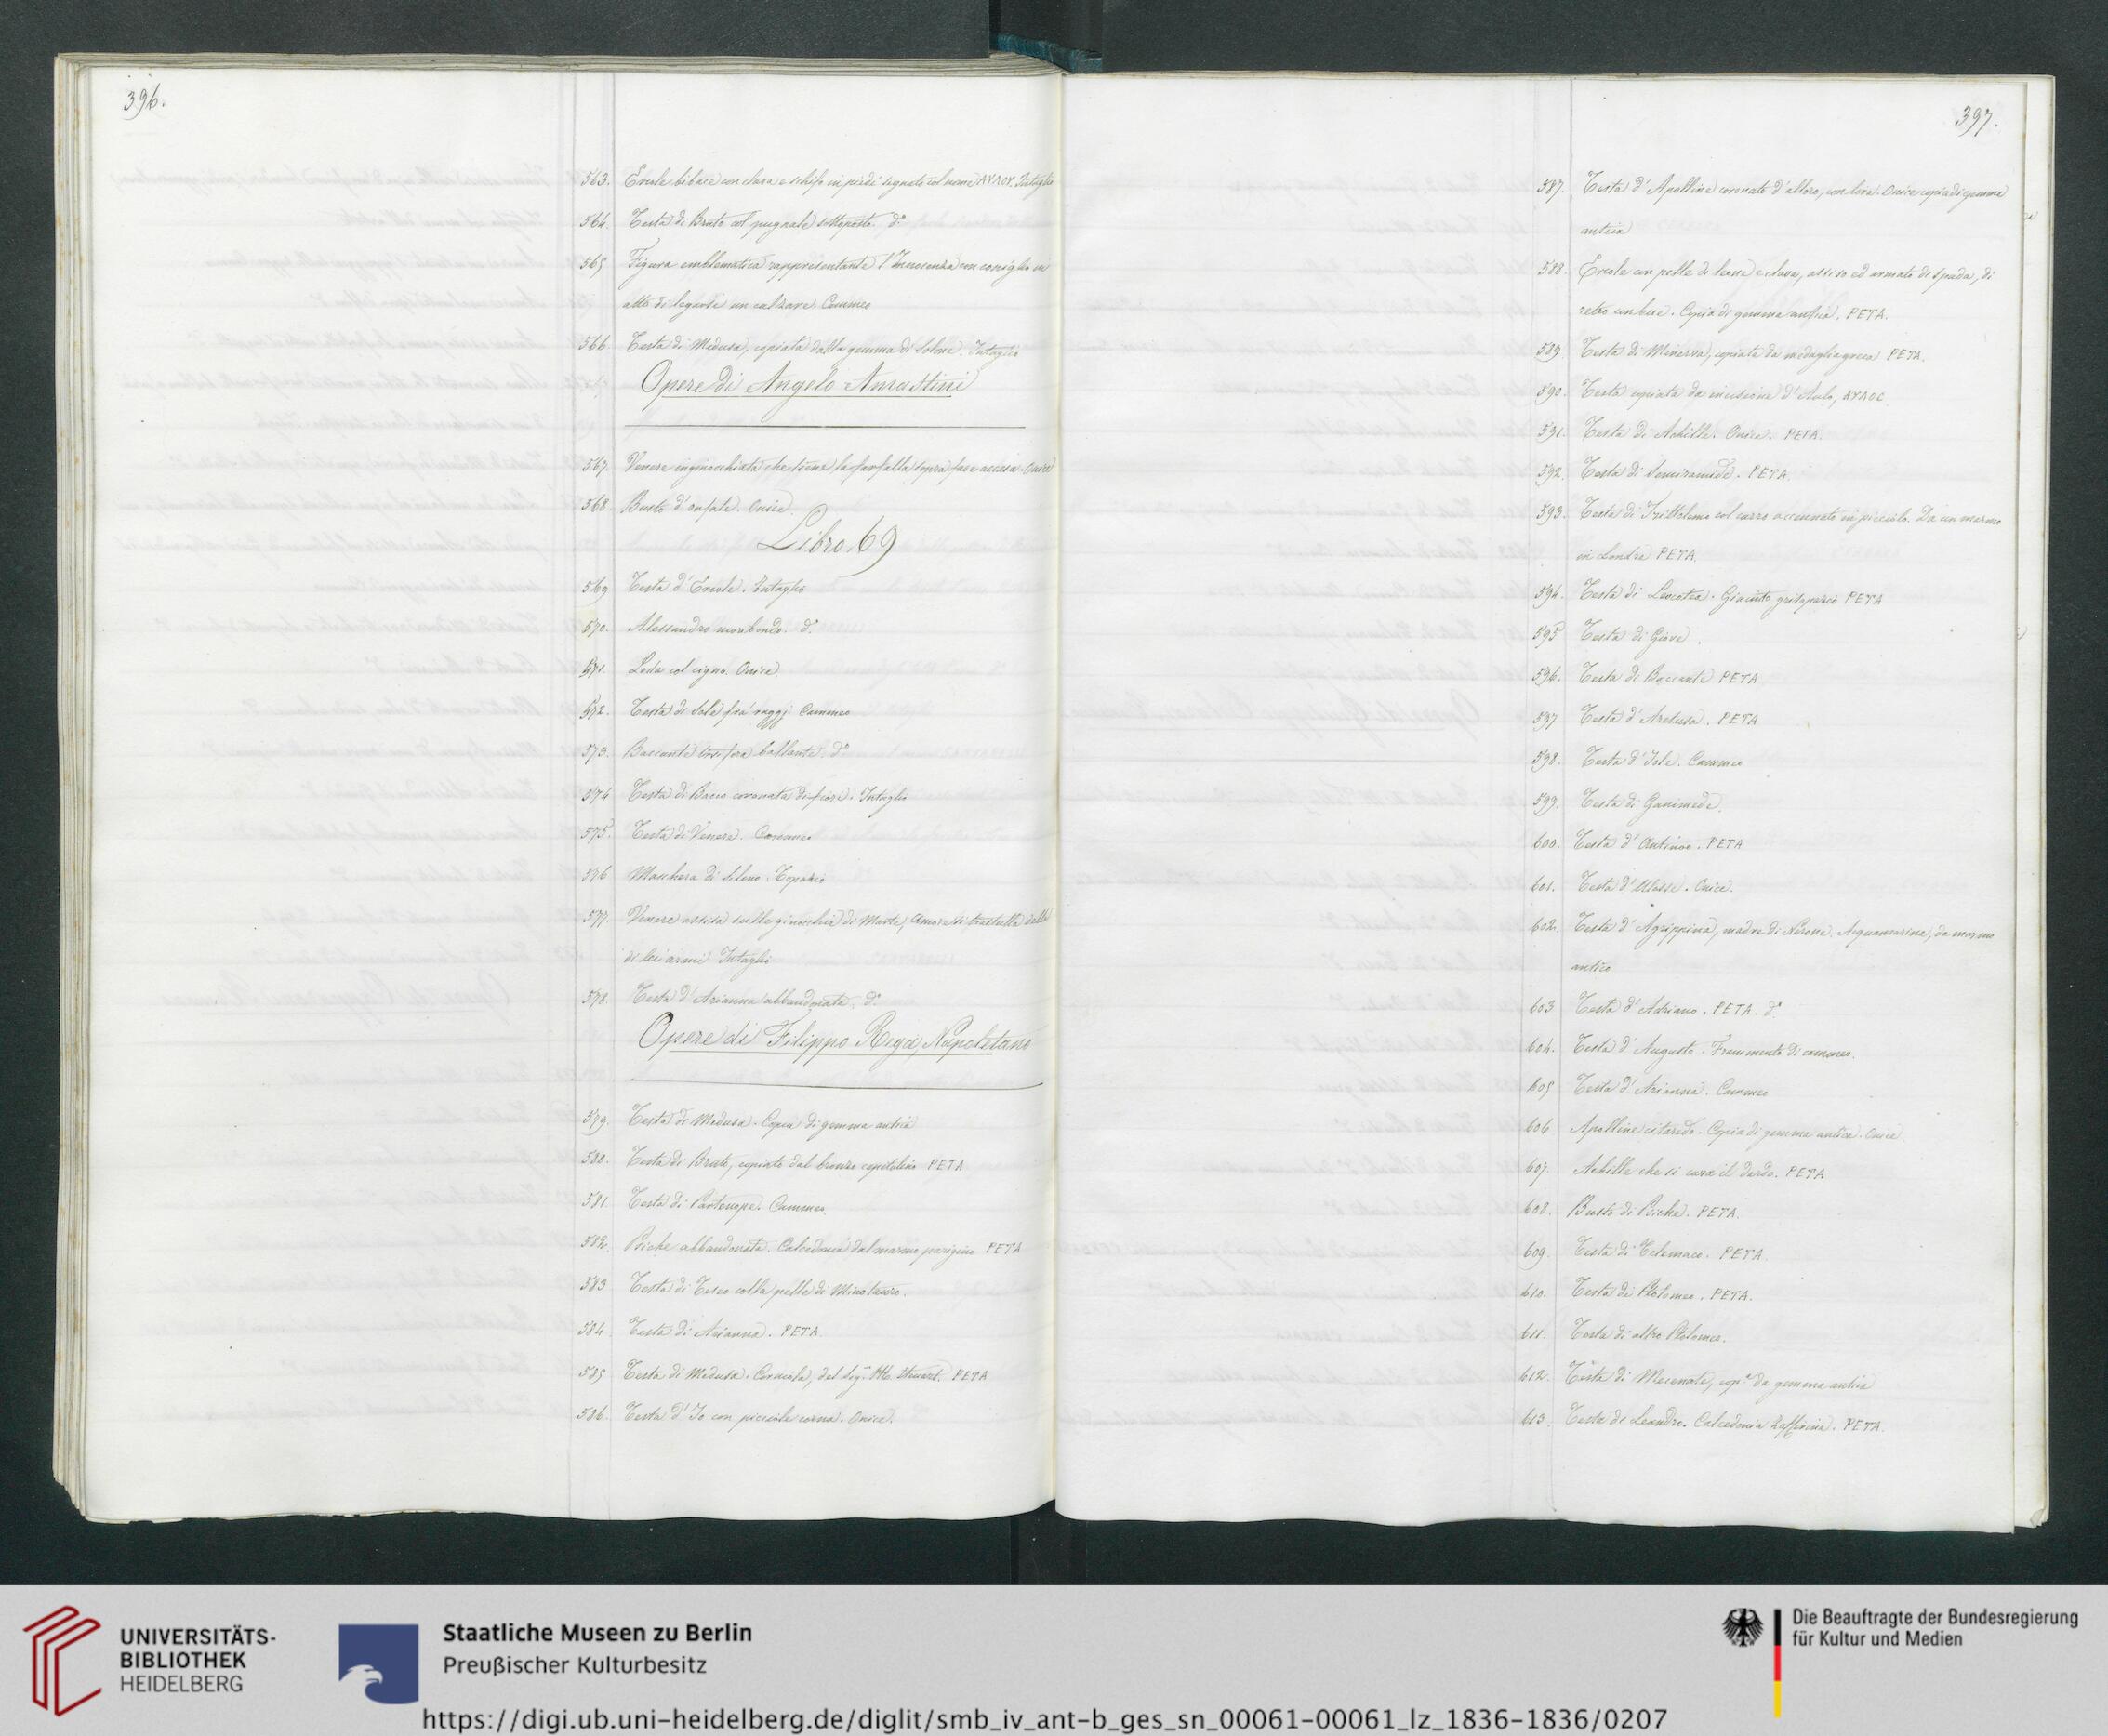 396.
563. Ercole bibace con clava e schifo in piedi segnato col nome ΑΥΛΟΥ. Intaglio
564. Testa di Bruto col pugnale sottoposto. dº
565 Figura emblematica rappresentante l'Innocenza in
atto di legarsi un calzare. Cammeo
566. Testa di Medusa, copiata dalla gemma di Solone. Intaglio
Opere di Angelo Amastini
567. Venere inginocchiata che tiene la farfalla sopra face accesa. Onice
568. Busto d'onfale. Onice.
Libro 69
569 Testa d'Ercole. Intaglio
570. Alessandro moribondo. dº
571. Leda col cigno. Onice.
572. Testa di Sole fra' raggj. Cammeo
573. Baccante ballante. dº
574 Testa di Bacco coronata di fiori. Intaglio
575. Testa di Venere. Cammeo
576 Maschera di Sileno. Topazio
577. Venere assisa sulle ginocchia di Marte, Amore si trastulla delle
di lui armi Intaglio
578. Testa d'Arianna abbandonata. dº
Opere di Filippo Rega, Napoletano
579. Testa di Medusa. Copia di gemma antica
580. Testa di Bruto, copiata dal bronzo capitolino ΡΕΓΑ
581 Testa di Partenope. Cammeo.
582. Psiche abbandonata. Calcedonia dal marmo parigino ΡΕΓΑ
583 Testa di Teseo colla pelle di Minotauro.
584 Testa di Arianna. ΡΕΓΑ.
585 Testa di Medusa. Corniola, del Sig. ΡΕΓΑ
586. Testa d'Io con piccole corna. Onice.
397.
587. Testa d'Apolline coronato d'alloro, con lira. Onice copia di gemma
antica
588. Ercole con pelle di leone e clava, assiso ed armato di spada, di
retro un bue. Copia di gemma antica. ΡΕΓΑ.
589 Testa di Minerva, copiata da medaglia greca ΡΕΓΑ.
590. Testa copiata da incisione d'Aulo, ΑΥΛΟC
591. Testa di Achille. Onice. ΡΕΓΑ.
592. Testa di Semiramide. ΡΕΓΑ.
593. Testa di Trittolemo col carro accennato in piccolo. Da un marmo
in Londra ΡΕΓΑ.
594. Testa di Leucotea. Giacinto ΡΕΓΑ
595 Testa di Giove.
596. Testa di Baccante ΡΕΓΑ
597 Testa d'Aretusa. ΡΕΓΑ
598. Testa d'Iole. Cammeo
599. Testa di Ganimede.
600. Testa d'Antinoo. ΡΕΓΑ
601. Testa d'Ulisse. Onice.
602. Testa d'Agrippina, madre di Nerone. Acquamarina, da marmo
antico
603 Testa d'Adriano. ΡΕΓΑ. dº
604. Testa d'Augusto. Frammento di cammeo.
605 Testa d'Arianna. Cammeo
606 Apolline citaredo. Copia di gemma antica. Onice
607. Achille che si cava il dardo. ΡΕΓΑ
608. Busto di Psiche. ΡΕΓΑ.
609. Testa di Telemaco. ΡΕΓΑ.
610. Testa di Ptolomeo. ΡΕΓΑ.
611. Testa di altro Ptolomeo.
612. Testa di Mecenate, copª da gemma antica
613. Testa di Leandro. Calcedonia Zaffirina. ΡΕΓΑ.
UNIVERSITÄTS-
BIBLIOTHEK
HEIDELBERG
Staatliche Museen zu Berlin
Preußischer Kulturbesitz
Die Beauftragte der Bundesregierung
für Kultur und Medien
https://digi.ub.uni-heidelberg.de/diglit/smb_iv_ant-b_ges_sn_00061-00061_lz_1836-1836/0207